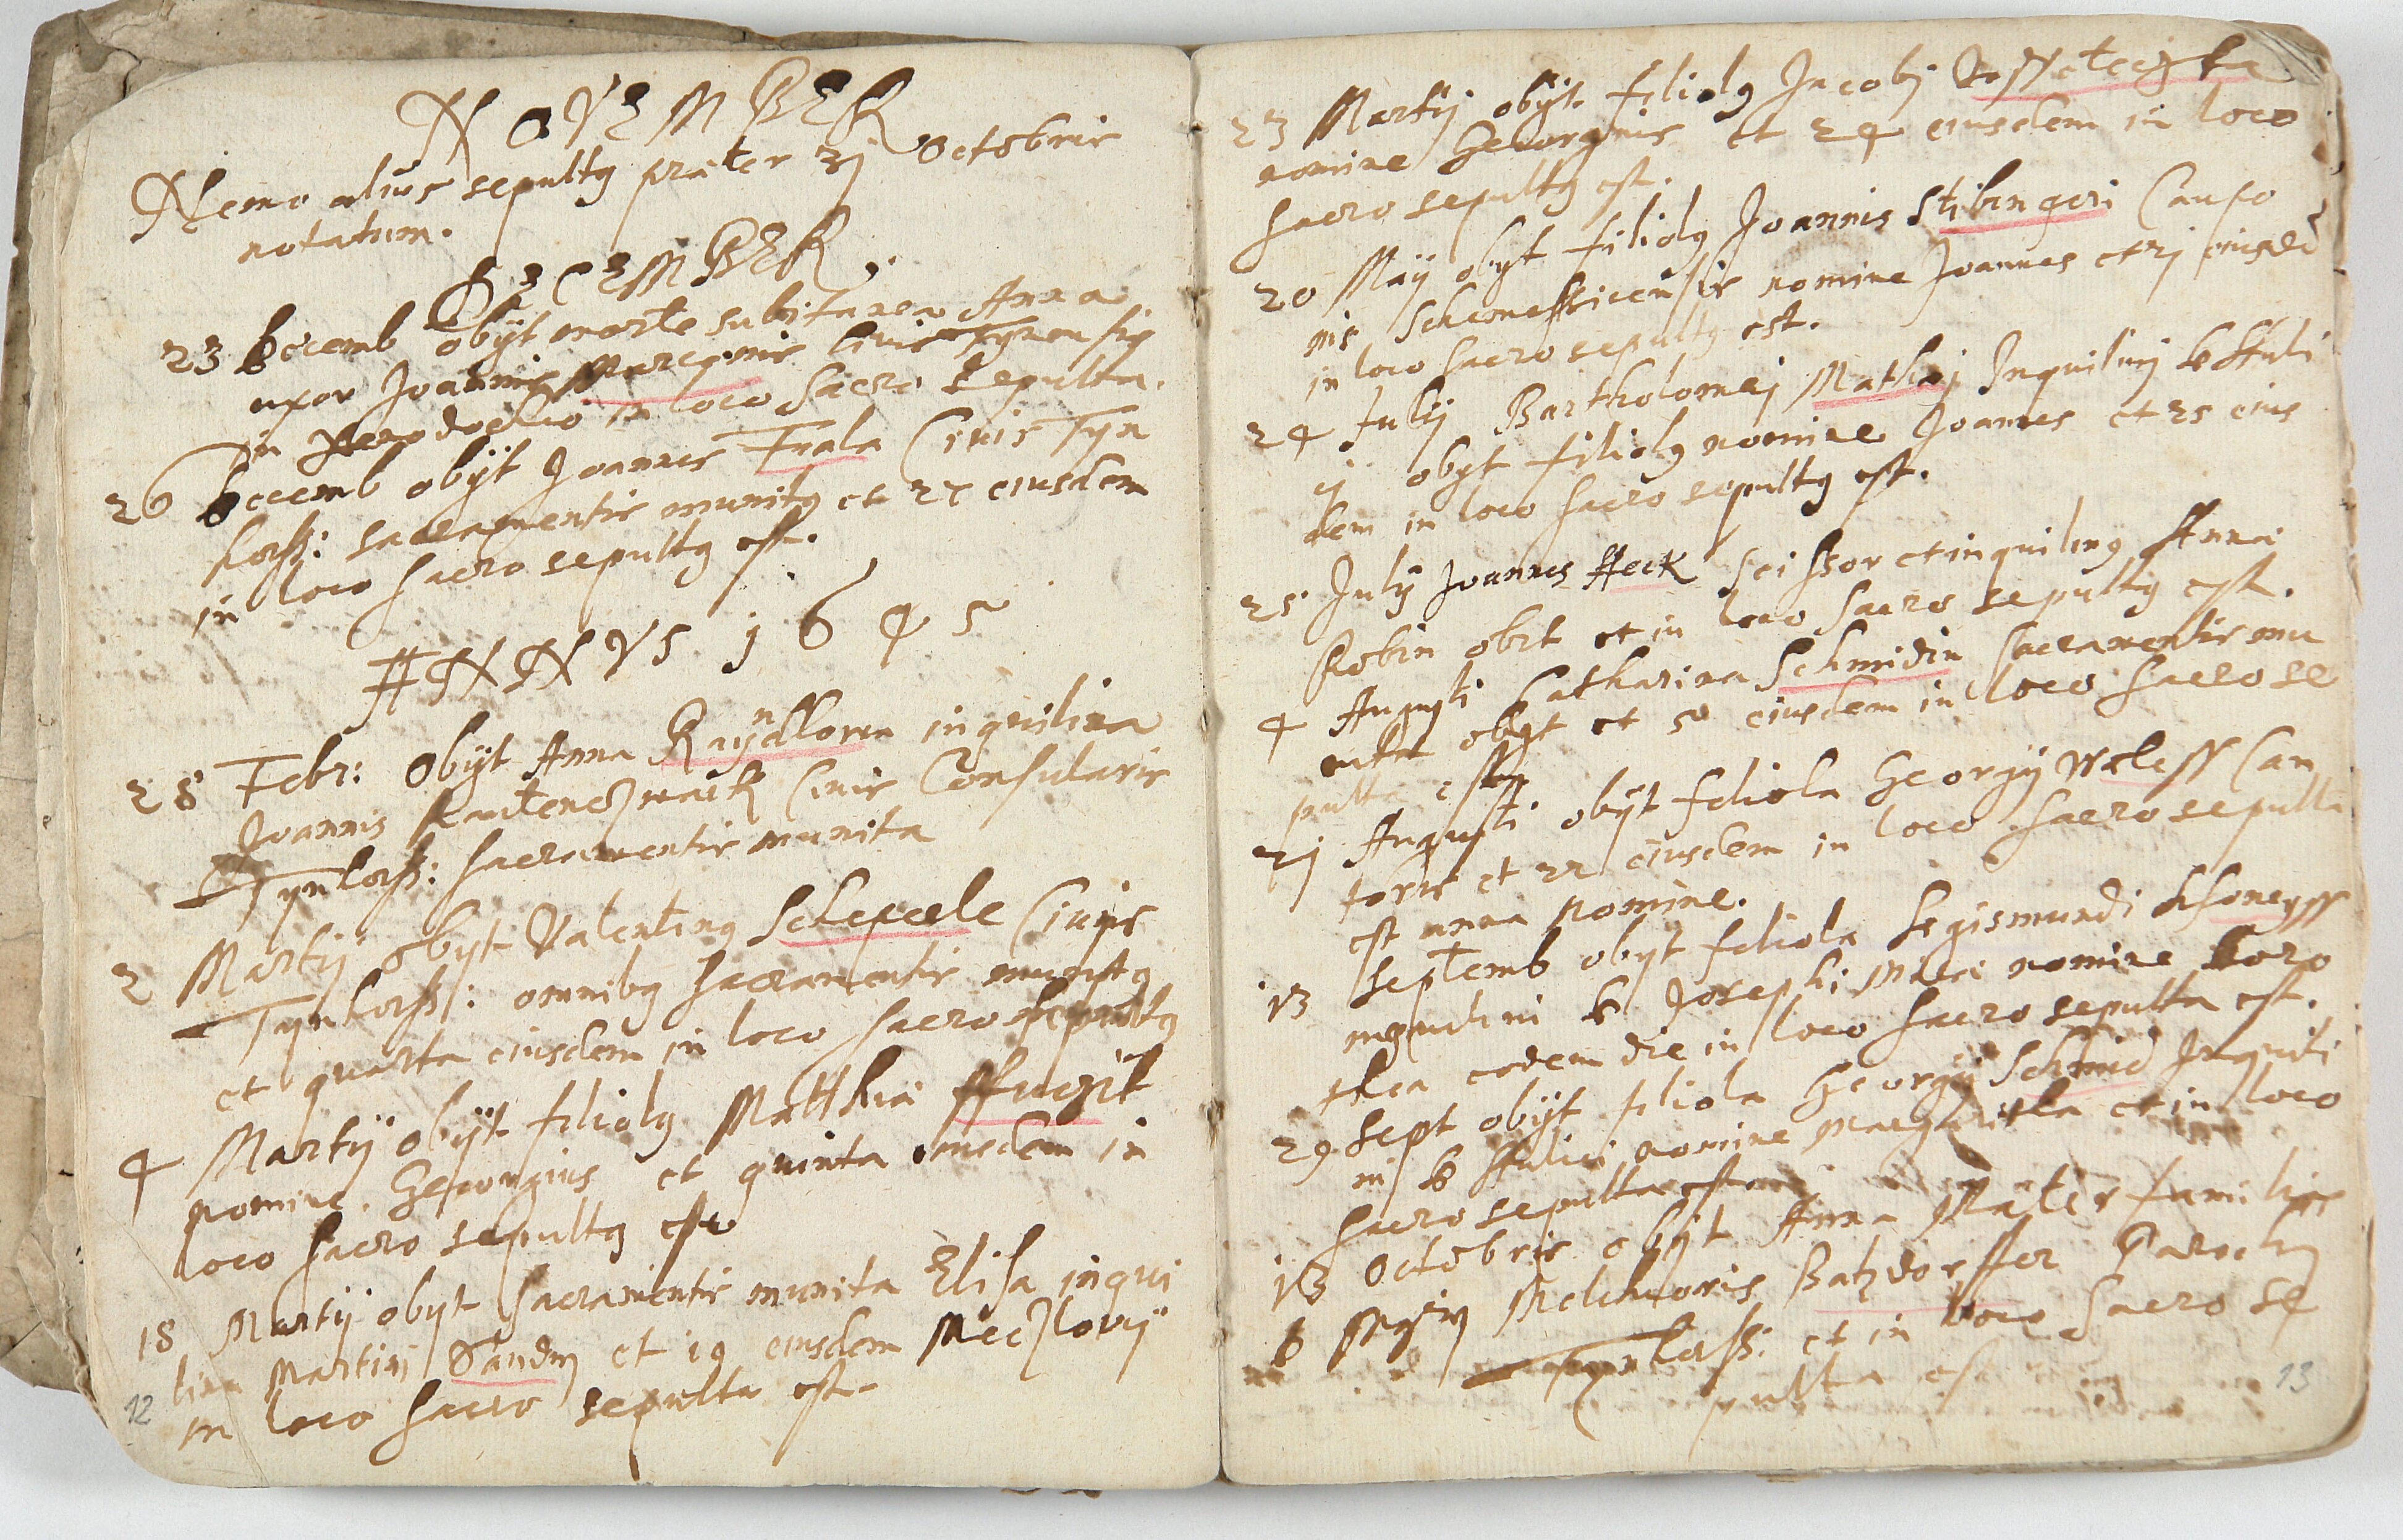 NOVEMBER
Nemo alius sepultg præter 31 Octobris
notatum.
DECEMBER.
23 Decemb obijt morte subitanea Anna
uxor Joannis civis Tynensis
in in loco Sacro Sepulta.
26 Decemb obijt Joannes Frala Civis Tyn
horß: sacramentis munitg et 27 eiusdem
in loco sacro sepultg est.
ANNUS 1645
28 Febr: Obijt Anna inquilina
Joannis Civis Consularis
Tynhorß: sacramentis munita
2 Martij obijt Valenting Schepcele Civis
Tynhorß: omnibg sacramentis munitg
et quarta eiusdem in loco sacro sepultg
4 Martij obijt filiolg Matthiæ
nomine Georgius et quinta eiusdem in
loco sacro sepultg est
18 Martij obijt sacramentis munita Elisa inqui
lina Martini et 19 eiusdem
in loco sacro sepulta est.
12
23 Martij obijt filiolg Jacobj
nomine Georgius et 24 eiusdem in loco
sacro sepultg est.
20 Maij obijt filiolg Joannis Stibingeri Caupo
nis nomine Joannes et 21 eiusdē
in loco sacro sepultg est.
24 Julij Bartholomej Mathæj Inquilinj D
obijt filiolg nomine Joannes et 25 eius
dem in loco sacro sepultg est.
25 Julij Joannes Heck Scissor et inquiling Annæ
Robin obit et in loco sacro sepultg est.
4 Augusti Catharina Schmidin sacramentis mu
nita obijt et 5 eiusdem in loco sacro se
pulta est
21 Augusti obijt filiola Georgij Weless Can
toris et 22 eiusdem in loco sacro sepulta
est anna nomine.
13 Septemb obijt filiola Segismundi
D Josephi nomine Doro
thea eodem die in loco sacro sepulta est.
29 Sept obijt filiola Georgij Schmid Inquili
ni D nomine et in loco
sacro sepulta est
13 Octobris obijt Anna Mater familias
D Melchioris Batzdorffer Parochj
Tynhorß: et in loco sacro se
pulta est
13